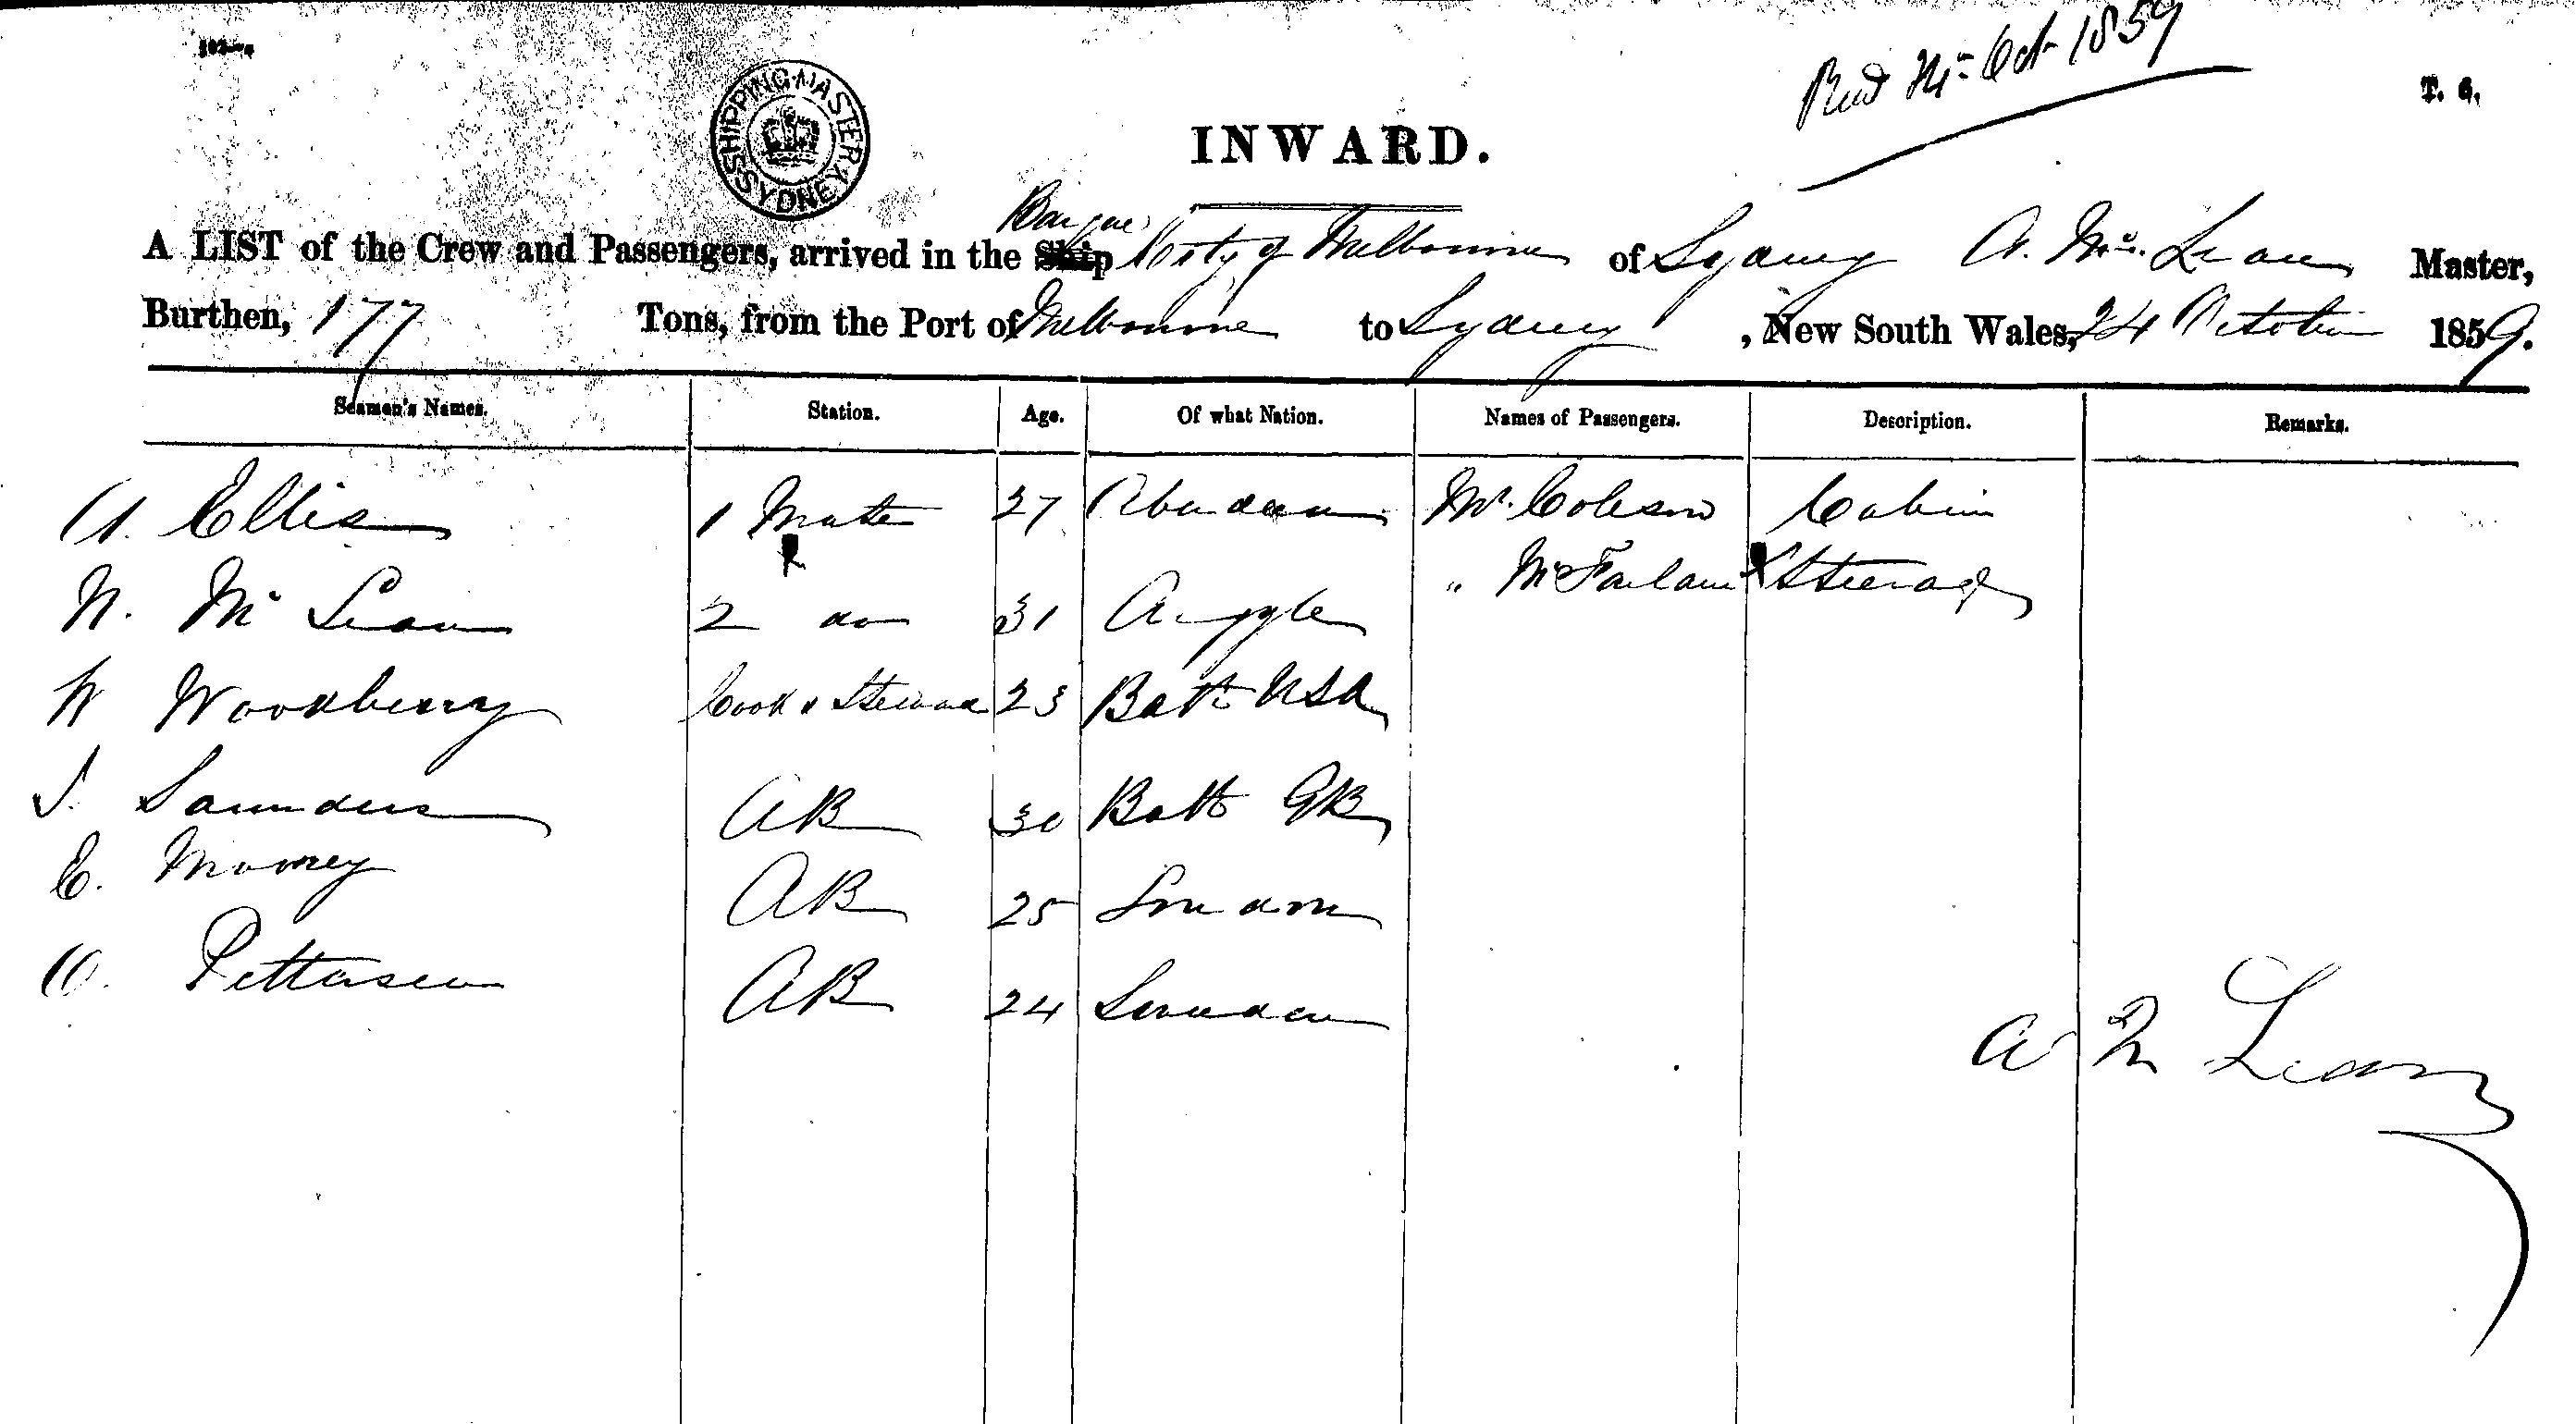 Recd 24th Oct 1859
T. 6.
SHIPPING MASTER SYDNEY
INWARD.
Barque
A LIST of the Crew and Passengers, arrived in the Ship City of Melbourne of Sydney A. Mc. Lean Master,
Burthen, 177 Tons, from the Port of Melbourne to Sydney, New South Wales, 24 October 1859.
Seamen's Names. Station. Age. Of what Nation. Names of Passengers. Description. Remarks.
A. Ellis 1 Mate 27 Aberdeen Mr. Coleson Cabin
N. Mc Lean 2 do 31 Argyle " McFarlane Steerage
W Woodberry Cook & Steward 23 Bath USA
J. Saunders AB 30 Bath GB
E. Mooney AB 25 London
O. Pettersen AB 24 Sweden
A Mc Lean